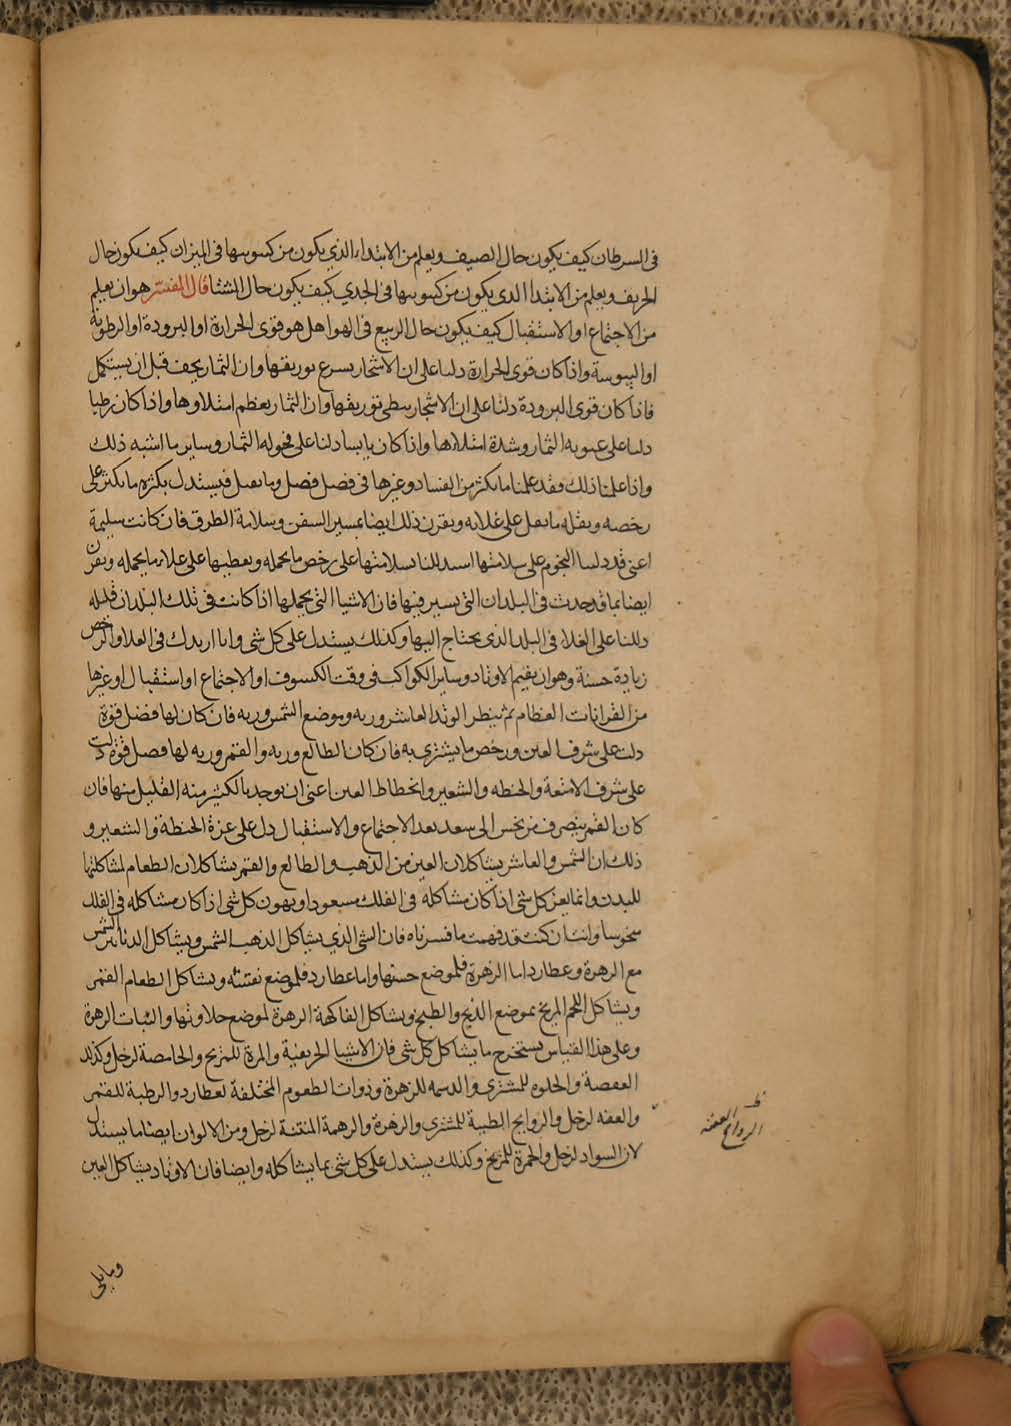 فى السرطان كيف يكون حال الصيف ويعلم من الابتداء الذي يكون من كسوسها فى الميزان كيف يكون حال
الخريف ويعلم من الابتدا الدى يكون من كسوسها فى الجدي كيف يكون حال الشتا قال المفسر هو ان يعلم
من الاجتماع او الاستقبال كيف يكون حال الربيع فى الهوا هل هو قوى الحرارة او البرودة او الرطوبة
او اليبوسة واذا كان قوى الحرارة دلنا على ان الاشجار يسرع توريقها وان الثمار يجف قبل ان يستكمل
فاذا كان قوى البرودة دلنا على ان الاشجار يبطى توريقها وان الثمار يعظم امتلاوها واذا كان رطبا
دلنا على عفونه الثمار وشدة امتلاها واذا كان يابسا دلنا على قحوله الثمار وساير ما اشبه ذلك
واذا علمنا ذلك فقد علمنا ما يكثر من الفساد وغيرها فى فصل فصل وما يقل فيستدل بكثره ما يكثر على
رخصه وبقله ما يقل على غلائه ويقرن ذلك ايضا بمسير السفن وسلامة الطرق فان كانت سليمة
اعنى قد دلنا النجوم على سلامتها استدللنا بسلامتها على رخص ما يحمله وبعطبها على غلاء ما يحمله ويقرن
ايضا بما قد حدث فى البلدان التى يسير فيها فان الاشيا التى يحملها اذا كانت فى تلك البلدان قليله
دللنا على الغلاء فى البلد الذى يحتاج اليها وكذلك يستدل على كل شى وانا ازيدك فى الغلا والرخص
زيادة حسنة وهو ان يقيم الاوتاد وساير الكواكب فى وقت الكسوف او الاجتماع او استقبال او غيرها
من القرانات العظام ثم ينظر الوتد العاشر وربه وموضع الشمس وربه فان كان لها فضل قوة
دلت على شرف العين ورخص ما يشترى به فان كان الطالع وربه والقمر وربه لها فضل قوة دلت
على شرف الامتعة والحنطه والشعير وانحطاط العين اعنى ان يوجد بالكثير منه القليل منها فان
كان القمر ينصرف من نحس الى سعد بعد الاجتماع والاستقبال دل على عزة الحنطة والشعير و
ذلك ان الشمس والعاشر يشاكلان العين من الذهب والطالع والقمر يشاكلان الطعام لمشاكلتها
للبدن وانما يعز كل شى اذا كان مشاكله فى الفلك مسعودا ويهون كل شى اذا كان مشاكله فى الفلك
منحوسا وانت ان كنت قد فهمت ما فسرناه فان الشى الذي يشاكل الذهب الشمس ويشاكل الدنانير الشمس
مع الزهرة وعطارد اما الزهرة فلموضع حسنها واما عطارد فلموضع نقشه ويشاكل الطعام القمر
ويشاكل اللحم المريخ بموضع الذبح والطبخ ويشاكل الفاكهة الزهرة لموضع حلاوتها والنبات الزهرة
وعلى هذا القياس يستخرج ما يشاكل كل شى فان الاشيا الحريفية والمرة للمريخ والحامضة لزحل وكذلك
العفصة والحلوه للمشترى والدسمه للزهرة وذوات الطعوم المختلفة لعطارد والرطبة للقمر
والعفنه لزحل والروايح الطيبة للمشترى والزهرة والزهمة المنتنة لزحل ومن الالوان ايضا ما يستدل
لان السواد لزحل والحمرة للمريخ وكذلك يستدل على كل شى بما يشاكله وايضا فان الاوتاد يشاكل العين
ظ
الروايح العفنه
وما يلى